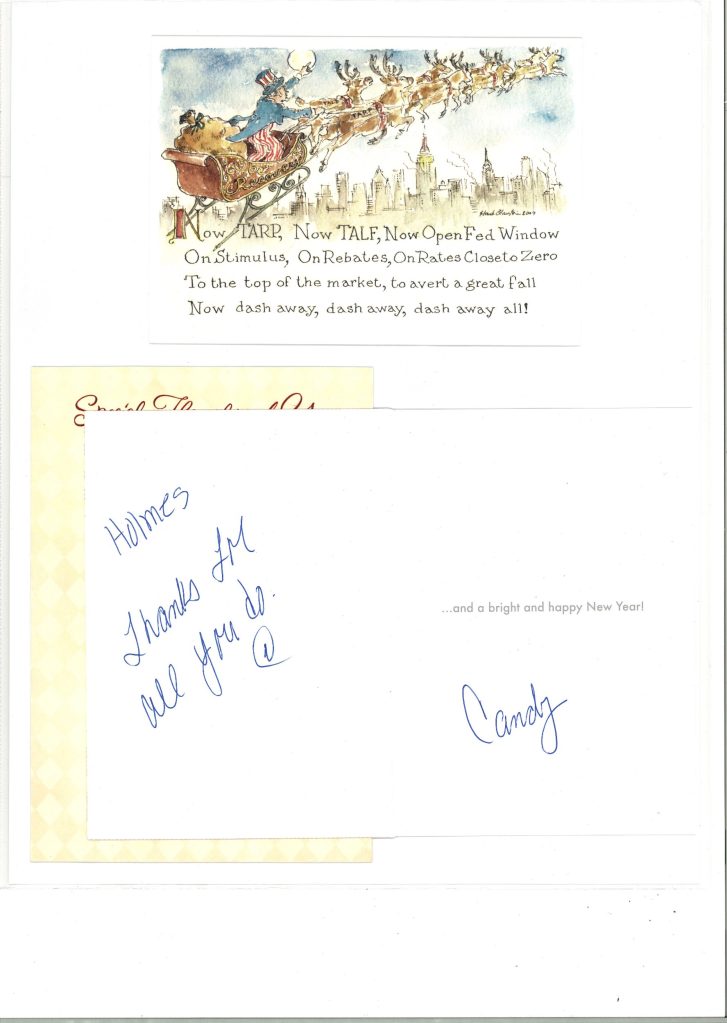 TARP
Now TARP, Now TALF, Now Open Fed Window
On Stimulus, On Rebates, On Rates Close to Zero
To the top of the market, to avert a great fall
Now dash away, dash away, dash away all!
Holmes
Thanks for
all you do.
...and a bright and happy New Year!
Candy